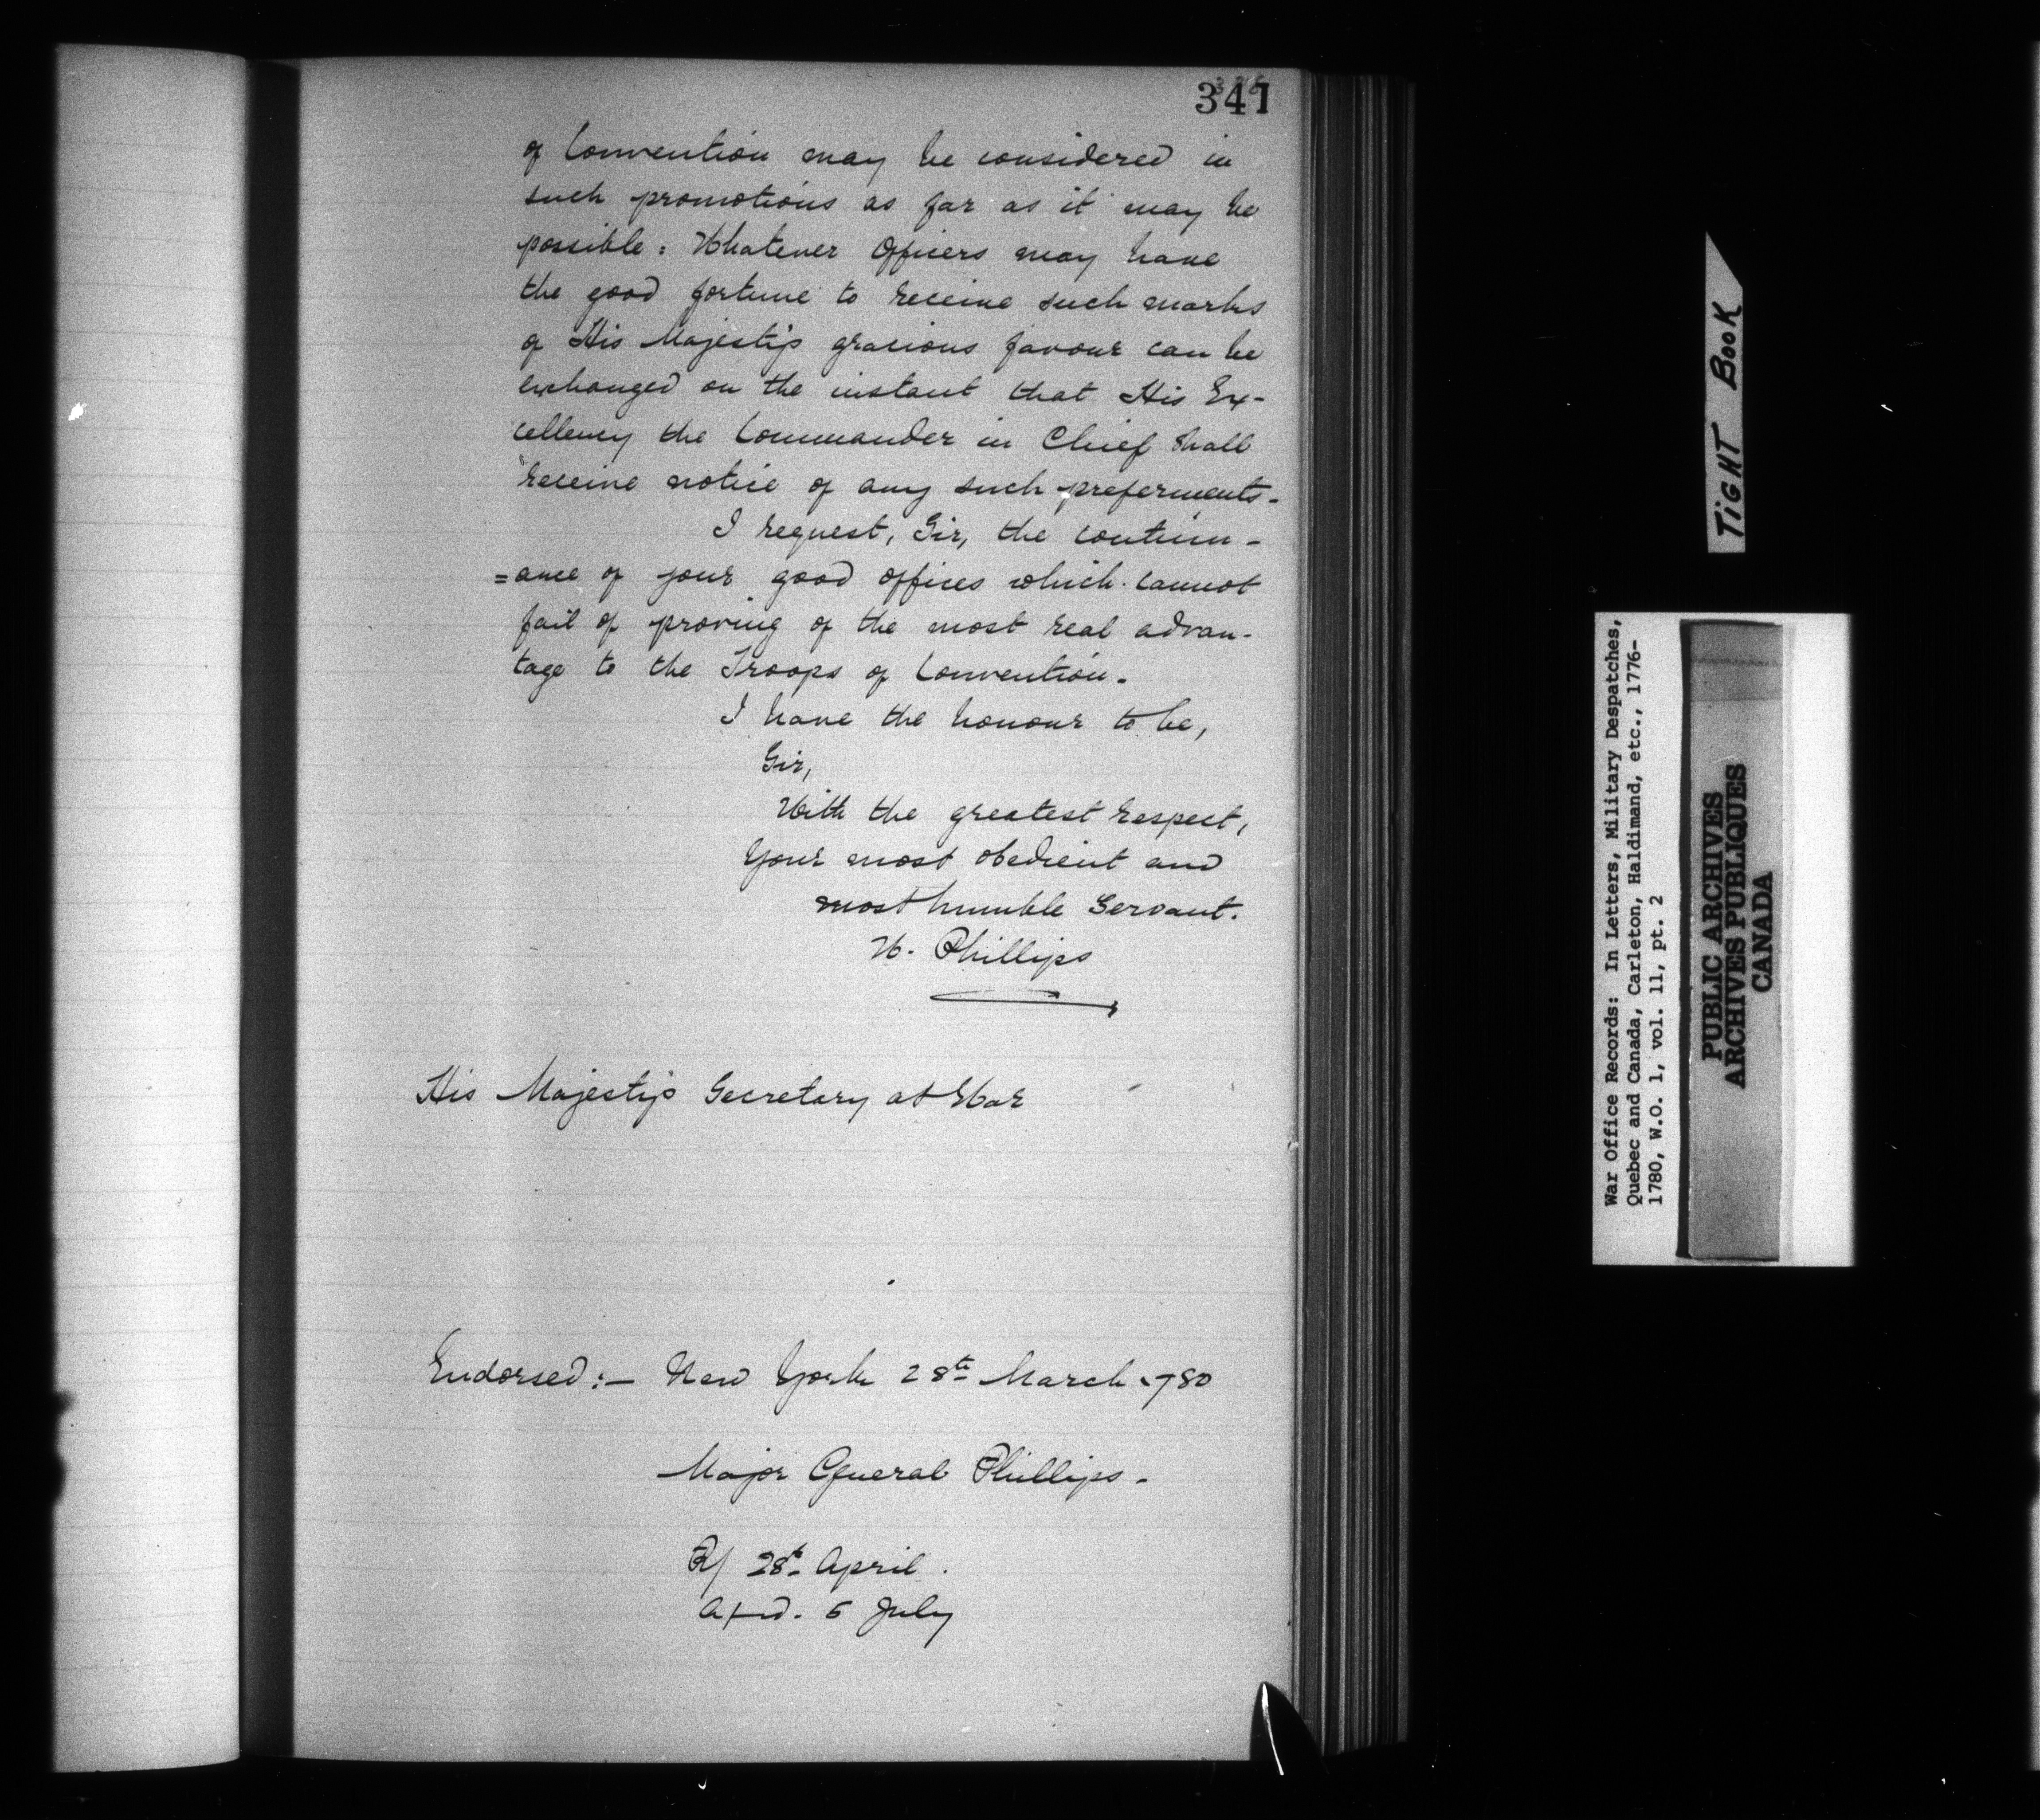 341
of Convention may be considered in
such promotions as far as it may be
possible: Whatever Officers may have
the good fortune to receive such marks
of His Majesty's gracious favour can be
exchanged on the instant that His Ex-
cellency the Commander in Chief shall
receive notice of any such preferments-
I request, Sir, the continu-
=ance of your good offices which cannot
fail of proving of the most real advan-
tage to the Troops of Convention.
I have the honour to be,
Sir,
With the greatest respect,
Your most obedient and
most humble Servant.
W. Phillips
His Majesty's Secretary at War
Endorsed:- New York 28th March 1780
Major General Phillips-
R/ 28th April.
5 July
TIGHT BOOK
War Office Records: In Letters, Military Despatches,
Quebec and Canada, Carleton, Haldimand, etc., 1776-
1780, W.O. 1, vol. 11, pt. 2
PUBLIC ARCHIVES
ARCHIVES PUBLIQUES
CANADA